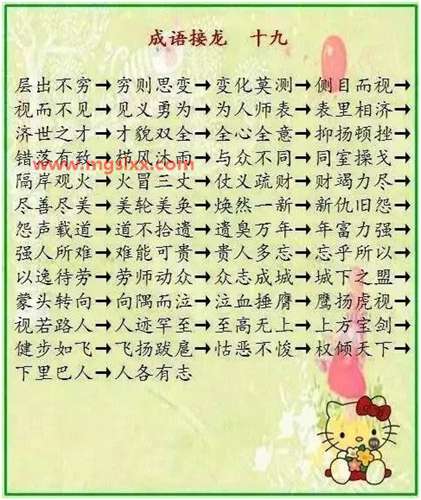 成语接龙 十九
层出不穷→穷则思变→变化莫测→侧目而视→
视而不见→见义勇为→为人师表→表里相济→
济世之才→才貌双全→全心全意→抑扬顿挫→
错落有致→栉风沐雨→与众不同→同室操戈→
www.mgsixx.com
隔岸观火→火冒三丈→仗义疏财→财竭力尽→
尽善尽美→美轮美奂→焕然一新→新仇旧怨→
怨声载道→道不拾遗→遗臭万年→年富力强→
强人所难→难能可贵→贵人多忘→忘乎所以→
以逸待劳→劳师动众→众志成城→城下之盟→
蒙头转向→向隅而泣→泣血捶膺→鹰扬虎视→
视若路人→人迹罕至→至高无上→上方宝剑→
健步如飞→飞扬跋扈→怙恶不悛→权倾天下→
下里巴人→人各有志